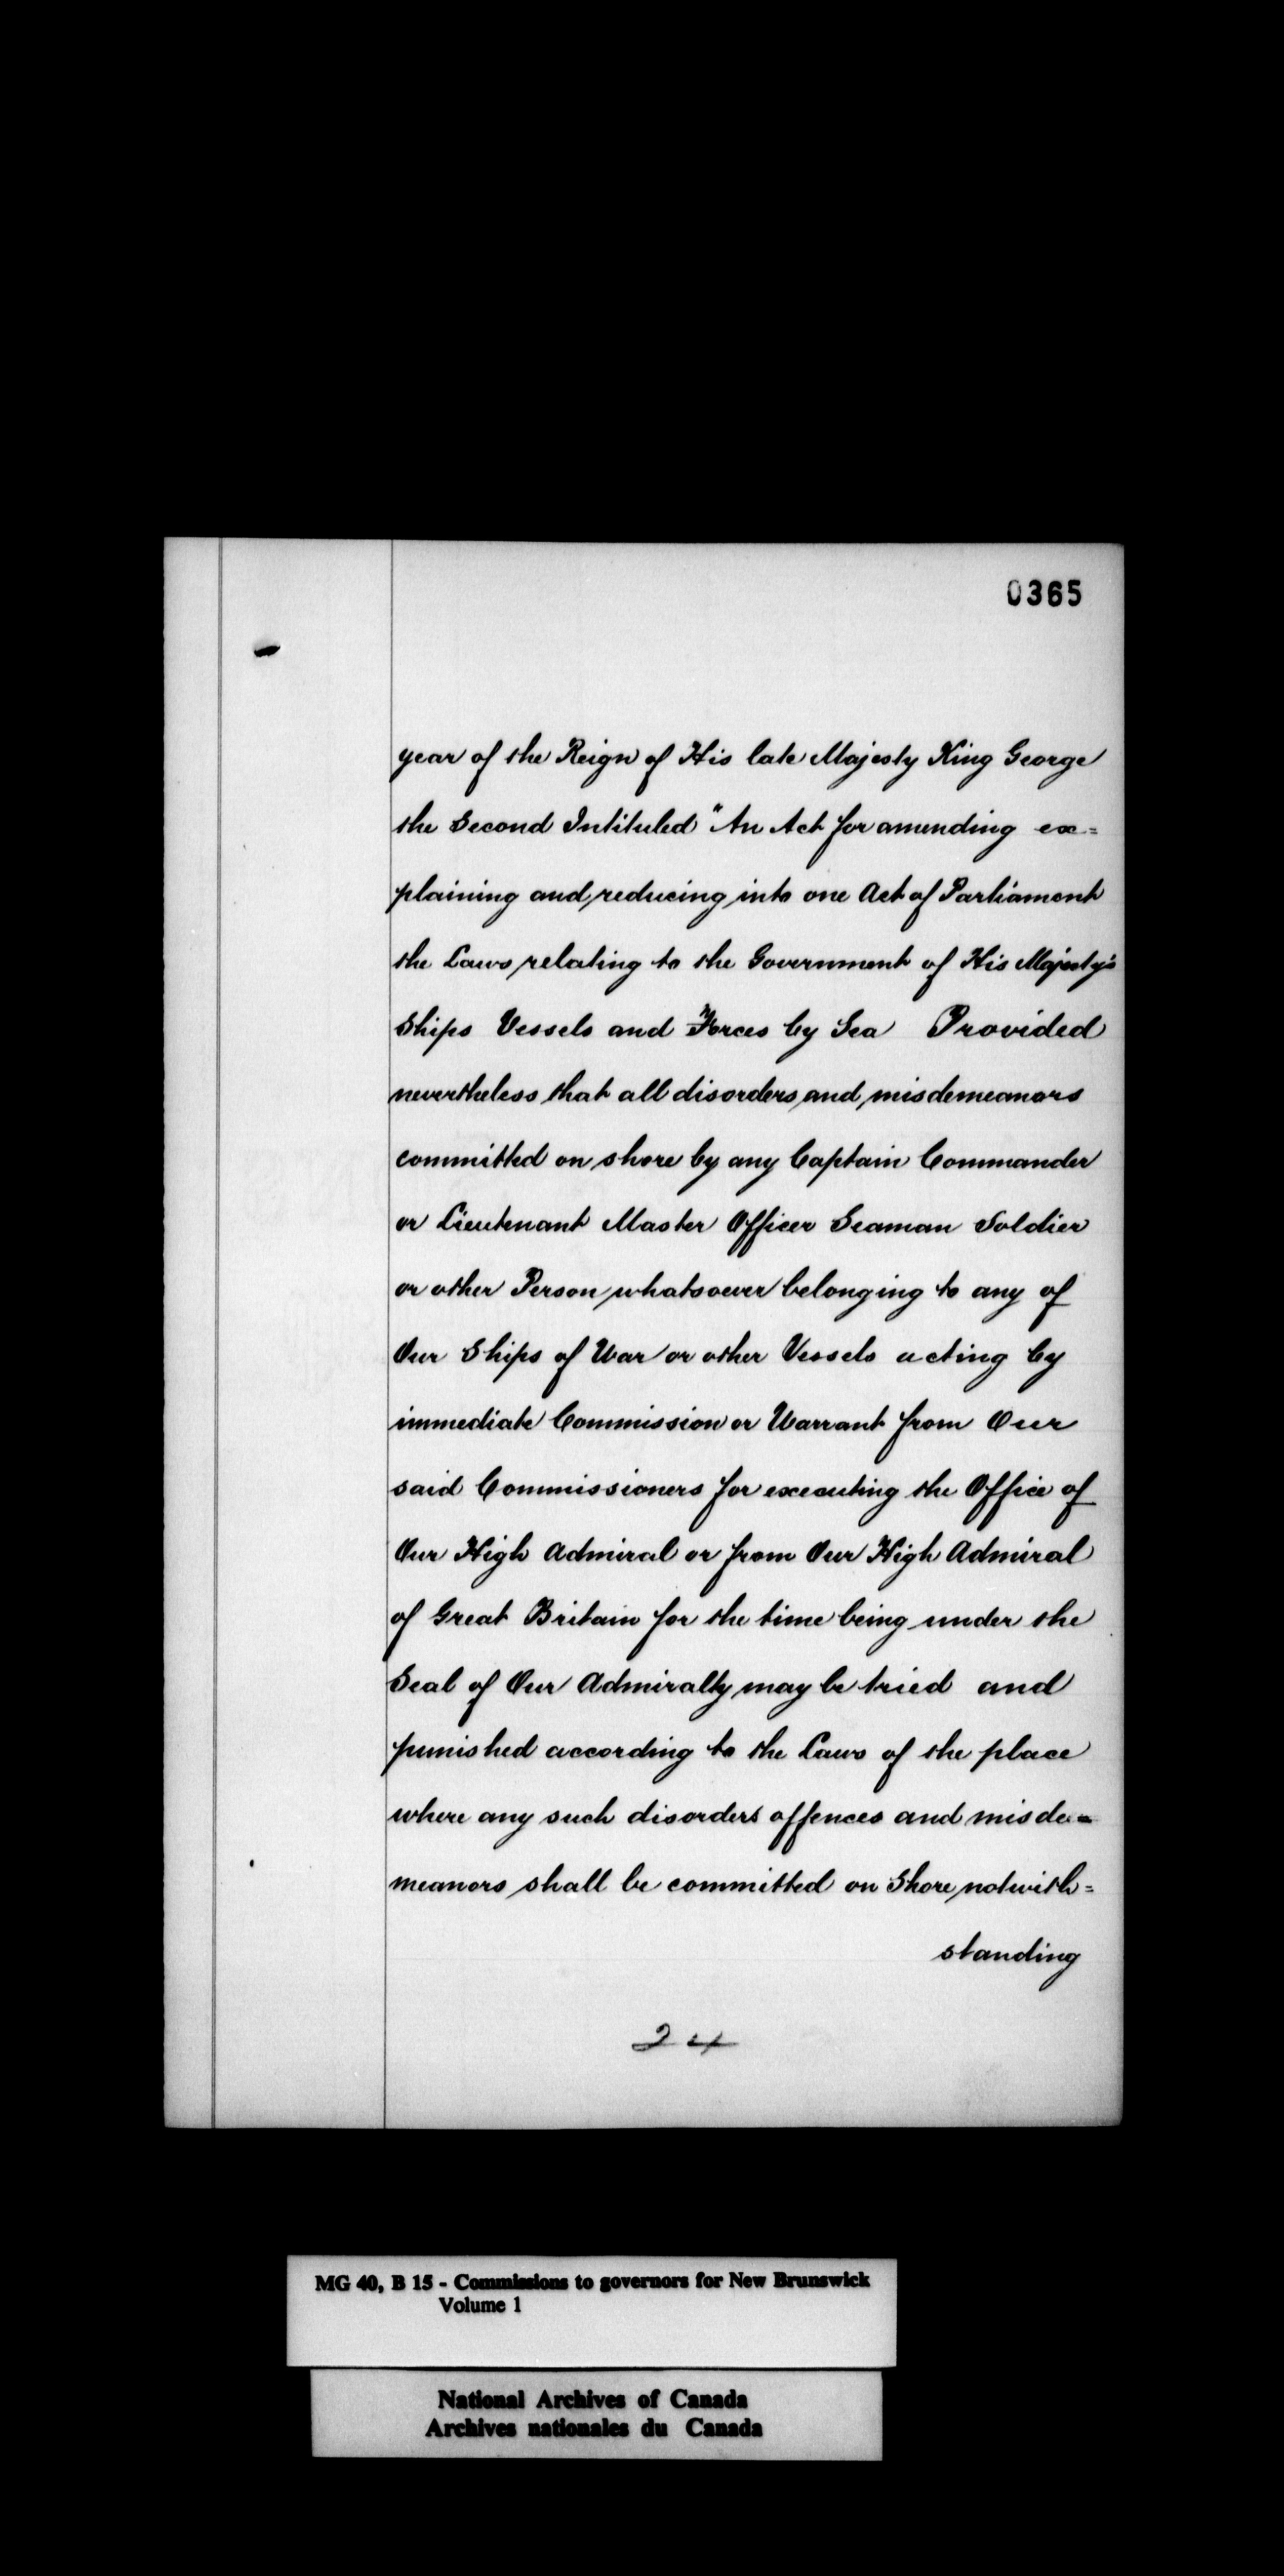 0365
year of the Reign of His late Majesty King George
the Second Intituled "An Act for amending ex=
plaining and reducing into one Act of Parliament
the Laws relating to the Government of His Majesty's
Ships Vessels and Forces by Sea Provided
nevertheless that all disorders and misdemeanors
committed on shore by any Captain Commander
or Lieutenant Master Officer Seaman Soldier
or other Person whatsoever belonging to any of
Our Ships of War or other Vessels acting by
immediate Commission or Warrant from Our
said Commissioners for executing the Office of
Our High Admiral or from Our High Admiral
of Great Britain for the time being under the
Seal of Our Admiralty may be tried and
punished according to the Laws of the place
where any such disorders offences and misde=
meanors shall be committed on Shore notwith=
standing
24
MG 40, B 15 - Commissions to governors for New Brunswick
Volume 1
National Archives of Canada
Archives nationales du Canada